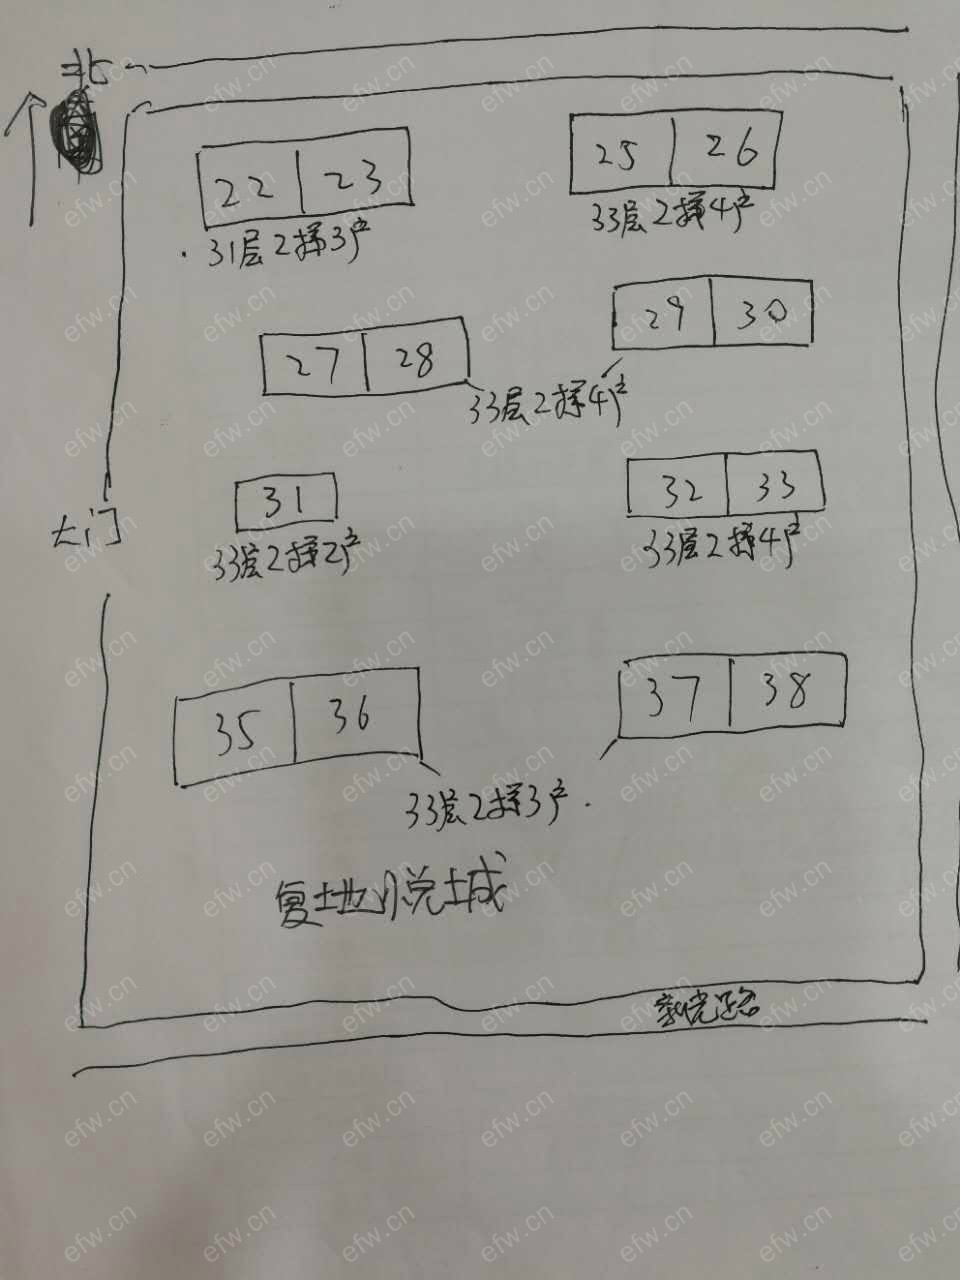 北
22 23
25 26
31层2梯3户
33层2梯4户
27 28
29 30
33层2梯4户
31
32 33
大门
33层2梯2户
33层2梯4户
35 36
37 38
33层2梯3户
复地悦城
efw.cn